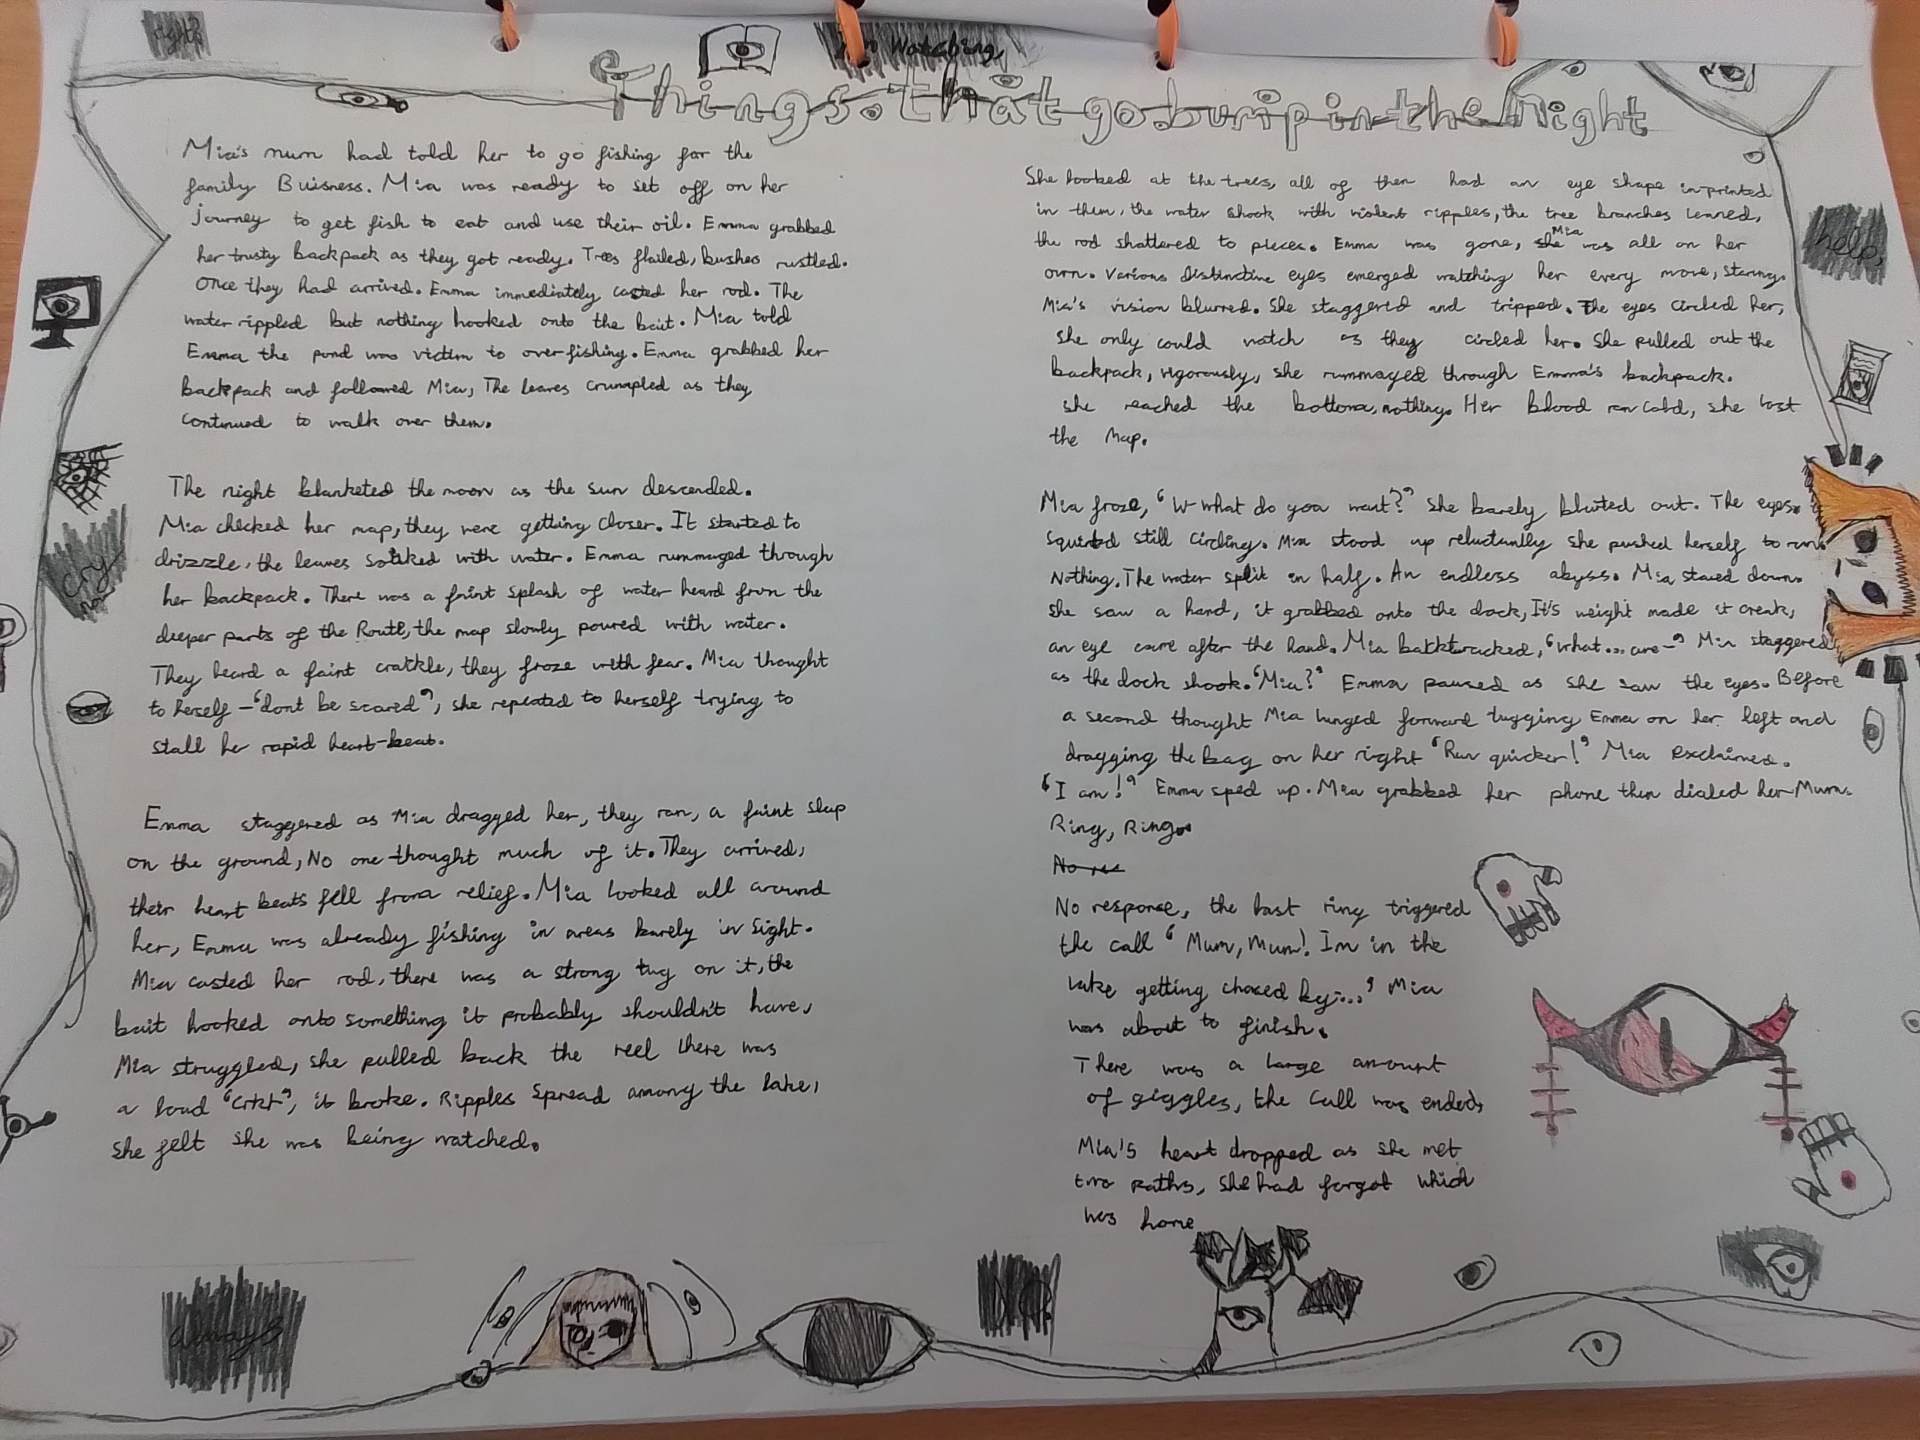 Watching
Things that go bump in the Night
Mia's mum had told her to go fishing for the
family Buisness. Mia was ready to set off on her
journey to get fish to eat and use their oil. Emma grabbed
her trusty backpack as they got ready. Trees flailed, bushes rustled.
Once they had arrived. Emma immediately casted her rod. The
water rippled but nothing hooked onto the bait. Mia told
Emma the pond was victim to overfishing. Emma grabbed her
backpack and followed Mia, The leaves crumpled as they
continued to walk over them.
The night blanketed the moon as the sun descended.
Mia checked her map, they were getting closer. It started to
drizzle, the leaves soaked with water. Emma rummaged through
her backpack. There was a faint splash of water heard from the
deeper parts of the Route, the map slowly poured with water.
They heard a faint crackle, they froze with fear. Mia thought
to herself - "dont be scared", she repeated to herself trying to
stall her rapid heart-beat.
Emma staggered as Mia dragged her, they ran, a faint slap
on the ground, No one thought much of it. They arrived,
their heart beats fell from relief. Mia looked all around
her, Emma was already fishing in areas barely in sight.
Mia casted her rod, there was a strong tug on it, the
bait hooked onto something it probably shouldn't have,
Mia struggled, she pulled back the reel there was
a loud "Crkt", it broke. Ripples spread among the lake,
She felt she was being watched.
She looked at the trees, all of them had an eye shape inprinted
in them, the water shook with violent ripples, the tree branches leaned,
the rod shattered to pieces. Emma was gone, she Mia was all on her
own. Various distinctive eyes emerged watching her every move, staring.
Mia's vision blurred. She staggered and tripped. The eyes circled her,
she only could watch as they circled her. She pulled out the
backpack, vigorously, she rummaged through Emma's backpack.
she reached the bottom, nothing. Her blood ran cold, she lost
the map.
Mia froze, "W-what do you want?" She barely blurted out. The eyes
squinted still circling. Mia stood up reluctantly she pushed herself to run.
Nothing. The water split in half. An endless abyss. Mia stared down.
She saw a hand, it grabbed onto the dock, It's weight made it creak,
an eye came after the hand. Mia backtracked, "what... are-" Mia staggered
as the dock shook. "Mia?" Emma paused as she saw the eyes. Before
a second thought Mia lunged forward tugging Emma on her left and
dragging the bag on her right "Run quicker!" Mia exclaimed.
"I am!" Emma sped up. Mia grabbed her phone then dialed her Mum.
Ring, Ring.
No response, the last ring triggered
the call "Mum, Mum! Im in the
lake getting chased by..." Mia
was about to finish.
There was a large amount
of giggles, the call was ended,
Mia's heart dropped as she met
two paths, she had forgot which
was home
help,
cry
now
always